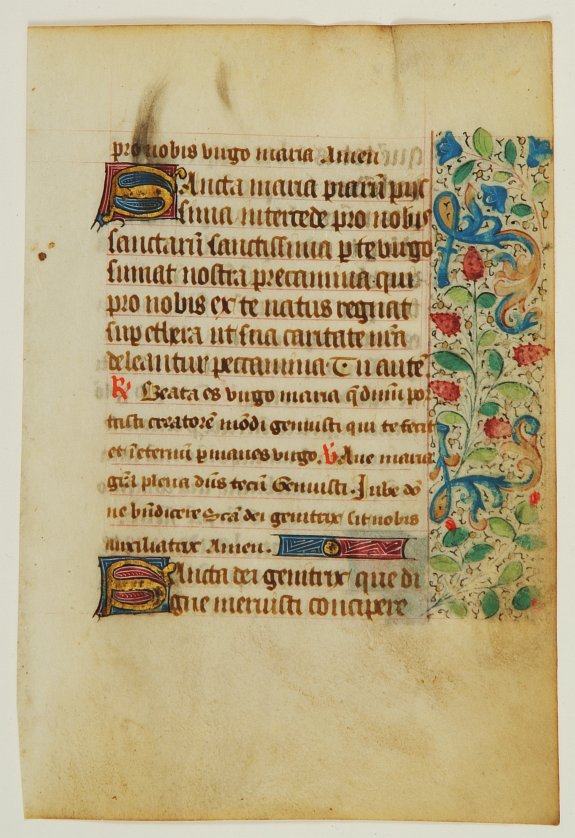 pro nobis virgo maria Amen
Sancta maria piarū piis
sima intercede pro nobis
sanctarū sanctissima p te virgo
sumat nostra precamina qui
pro nobis ex te natus regnat
sup ethera ut sua caritate nr̄a
deleantur peccamina · Tu autē
℟ Beata es virgo maria q̄ dn̄m por
tasti creatorē mōdi genuisti qui te fecit
et ī eternū p manes virgo. ℣ Aue maria
gr̄a plena dn̄s tecū Genuisti. Iube dō
ne bn̄dicere Scā dei genitrix sit nobis
auxiliatrix Amen.
Sancta dei genitrix que di
gne meruisti concipere